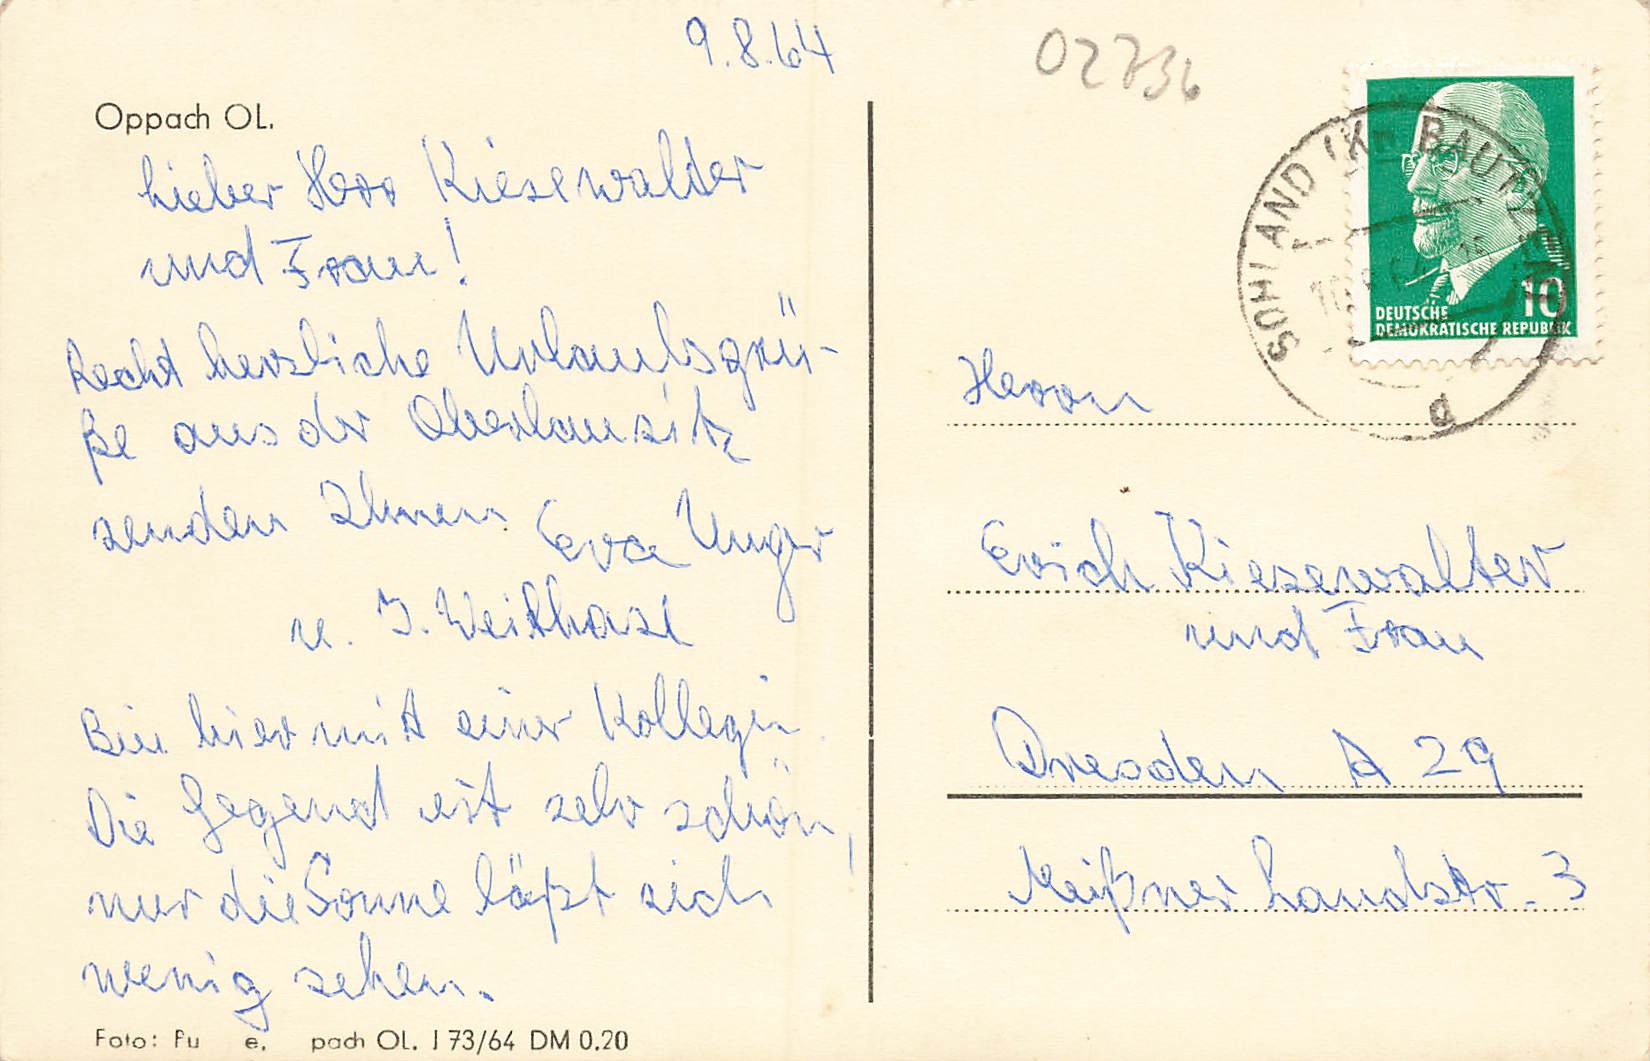 9.8.64
Oppach OL.
Lieber Herr Kiesewalter
und Frau!
Recht herzliche Urlaubsgrü-
ße aus der Oberlausitz
senden Ihnen Eva Unger
u. I. Weithase
Bin hier mit einer Kollegin.
Die Gegend ist sehr schön,
nur die Sonne läßt sich
wenig sehen.
Foto: pach OL. I 73/64 DM 0.20
02736
SOHLAND (Kr. BAUTZEN)
d
10
DEUTSCHE
DEMOKRATISCHE REPUBLIK
Herrn
Erich Kiesewalter
und Frau
Dresden A 29
Meißner Landstr. 3